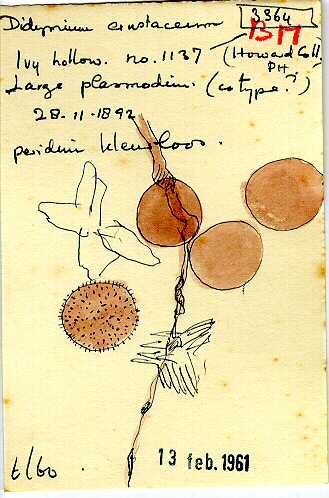 3364
BM
Didymium crustaceum
Ivy hollow. no. 1137 (Howard Coll
PH)
Large plasmodium. (cotype?)
28-11-1892
peridium kleurloos.
t/60
13 feb. 1961